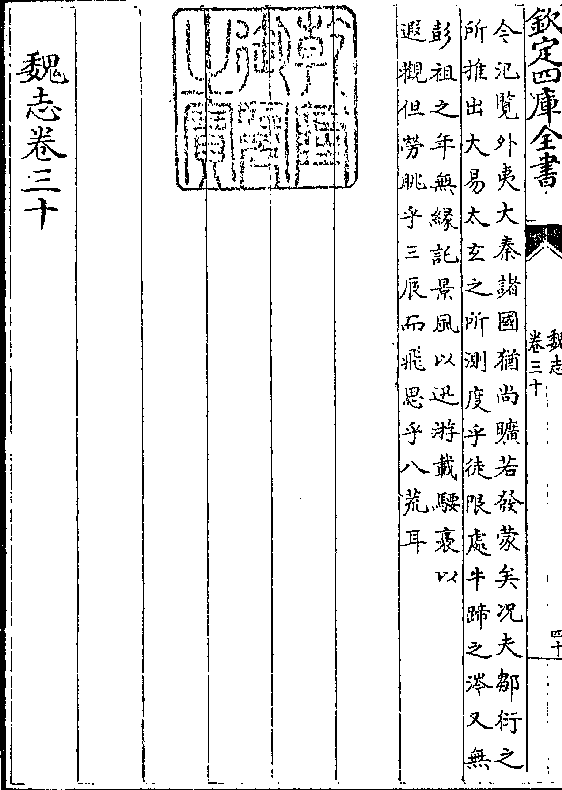 欽定四庫全書
魏志
卷三十
四十
今汜覽外夷大秦諸國猶尚曠若發蒙矣况夫鄒衍之
所推出大易太玄之所測度乎徒限處牛蹄之涔又無
彭祖之年無緣託景風以迅游載騕褭以
遐觀但勞眺乎三辰而飛思乎八荒耳
乾隆御覽之寶
魏志卷三十